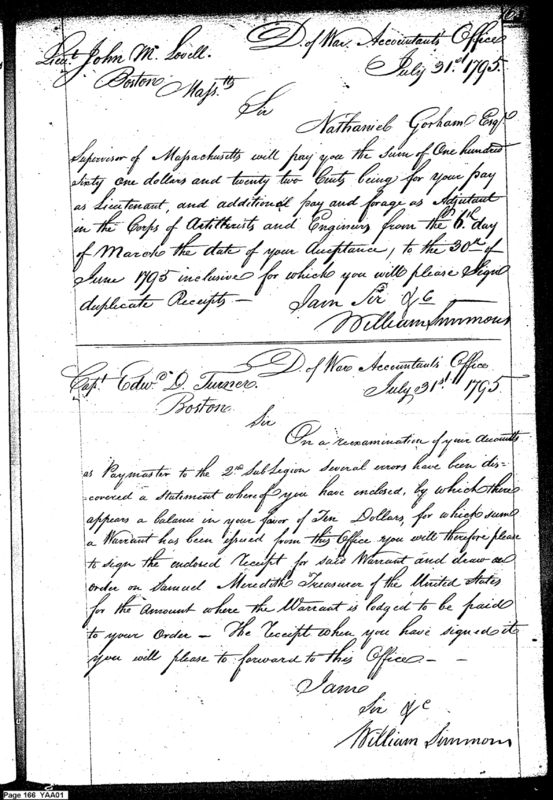 Lieut John McLovell. D. of War. Accountants Office
Boston July 31.st 1795.
Masstts
Sir
Nathaniel Gorham Esqr
Supervisor of Massachusetts will pay you the sum of One hundred
sixty one dollars and twenty two Cents being for your pay
as Lieutenant, and additional pay and forage as Adjutant
in the Corps of Artillerists and Engineers from the 6th day
of March the date of your Acceptance, to the 30th of
June 1795 inclusive for which you will please Sign
duplicate Receipts —
I am Sir &c
William Simmons
Capt Edwd D. Turner. D of War Accountants Office
Boston July 31st 1795
Sir
On a reexamination of your Accounts
as Paymaster to the 2nd Sub Legion several errors have been dis=
=covered a statement whereof you have enclosed, by which there
appears a balance in your favor of Ten Dollars, for which sum
a Warrant has been issued from this Office you will therefore please
to sign the enclosed receipt for said Warrant and draw an
order on Samuel Meredith Treasurer of the United States
for the Amount where the Warrant is lodged to be paid
to your Order — The receipt when you have signed it
you will please to forward to this Office — —
I am
Sir &c
William Simmons
Page 166 YAA01